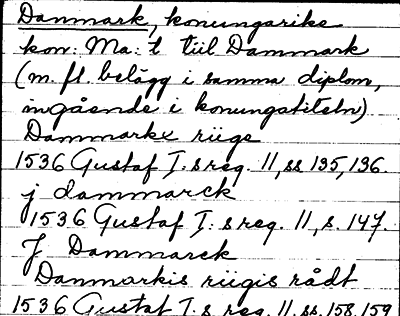 Danmark, konungarike
kon: Ma: t tiil Dammark
(m. fl. belägg i samma diplom,
ingående i konungatiteln)
Dammarkx riige
1536 Gustaf I:s reg. 11, ss 135, 136.
j dammarck
1536 Gustaf I: s reg. 11, s. 147.
J Dammarck
Danmarkis riigis rådt
1536 Gustaf I:s reg. 11. ss. 158, 159